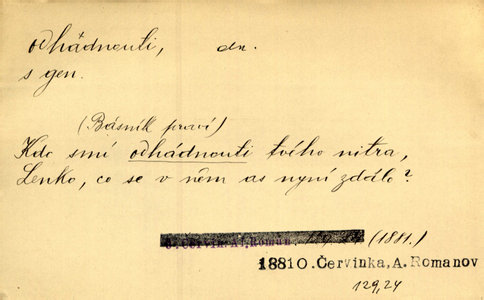 odhádnouti, dn.
s gen.
(Básník praví)
Kdo smí odhádnouti tvého nitra,
Lenko, co se v něm as nyní zdálo?
(1881.)
1881 O.Červinka, A. Romanov
129,24